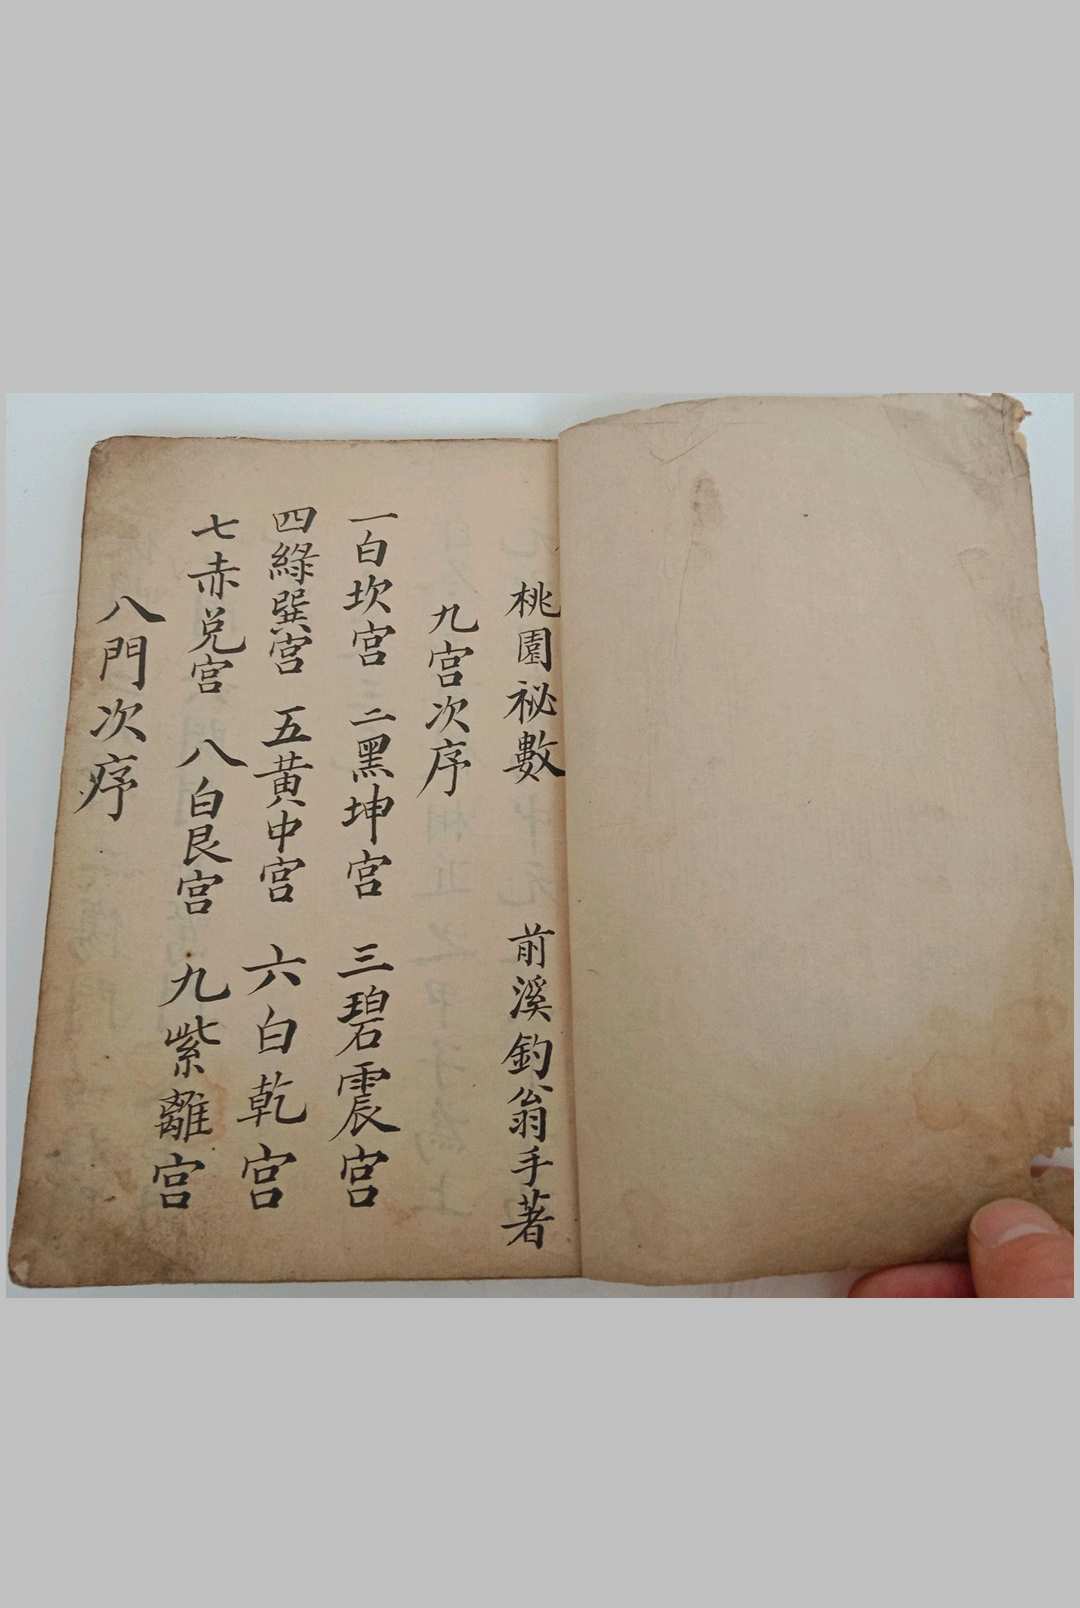 桃園祕數　前溪釣翁手著
九宮次序
一白坎宮　二黑坤宮　三碧震宮
四綠巽宮　五黄中宮　六白乾宮
七赤兑宮　八白艮宮　九紫離宮
八門次序